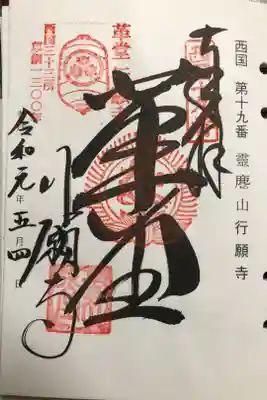 西国 第十九番 靈麀山行願寺
革堂
革堂
西国三十三所
草創一三〇〇年
行願寺
令和元年五月四日